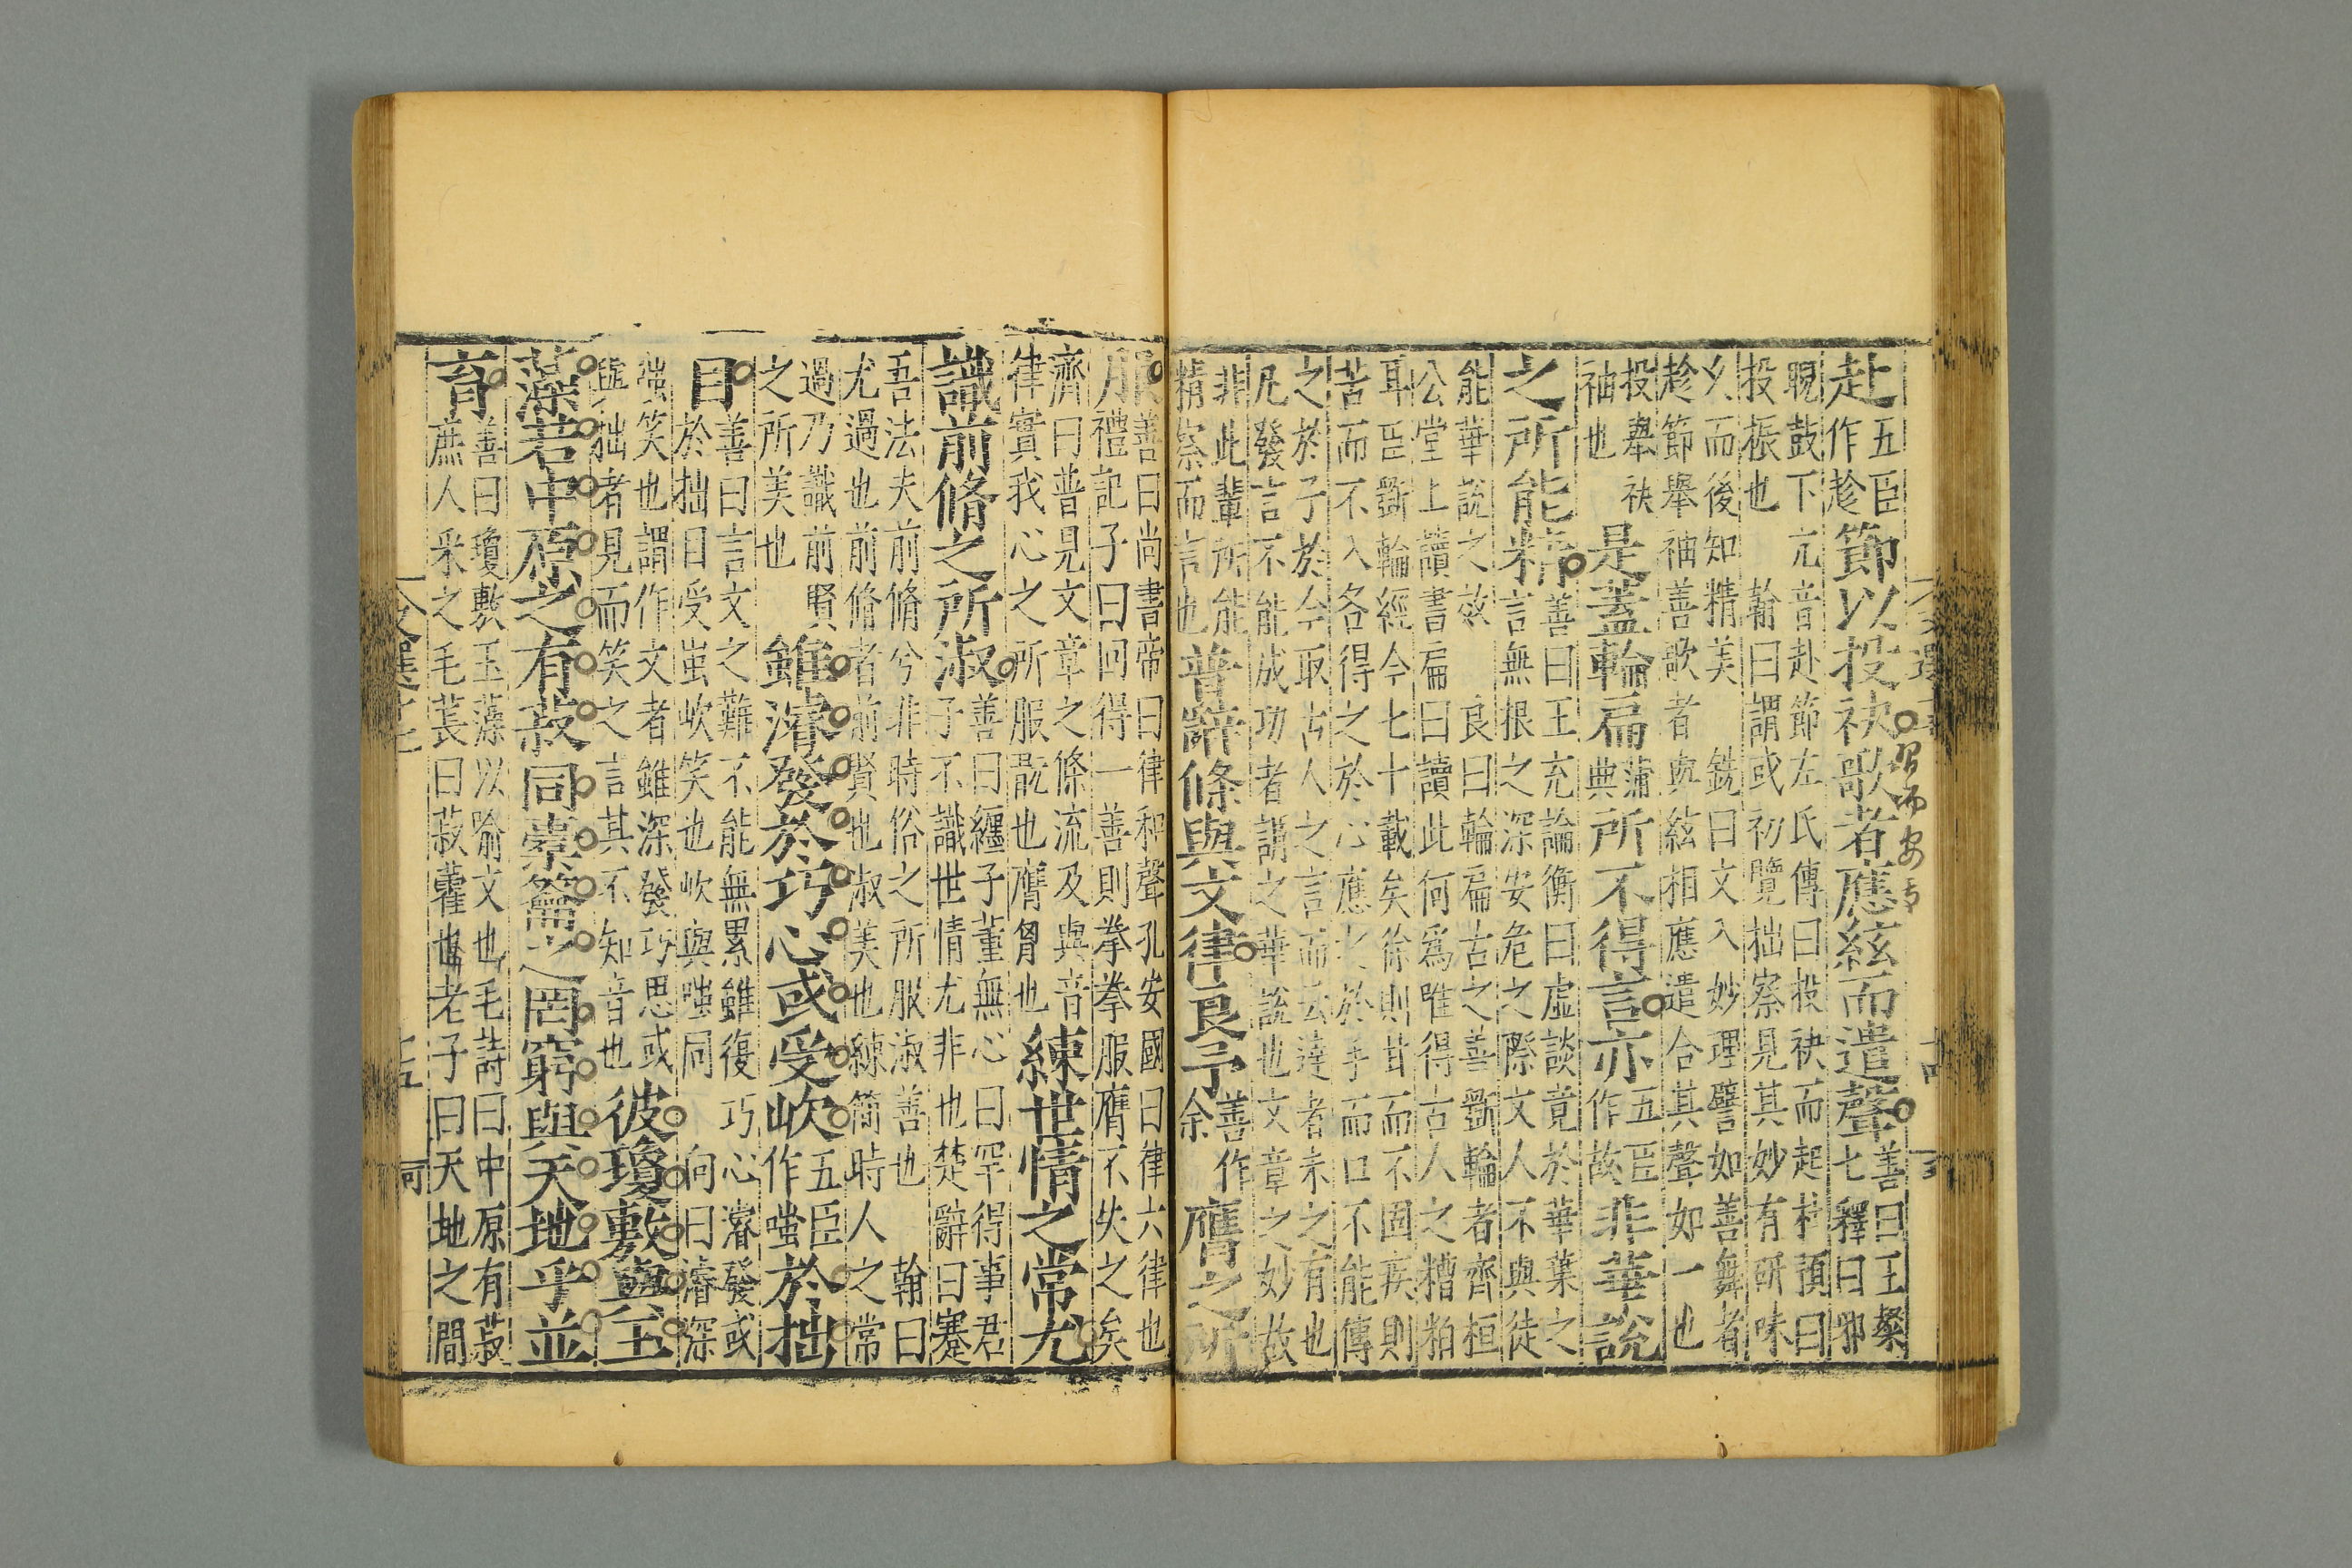 赴五臣作趁節以投袂歌者應絃而遣聲善曰王粲七釋曰邪
睨鼓下亢音赴節左氏傳曰投袂而起杜預曰
投振也翰曰謂或初覽拙察見其妙有研味
久而後知精美銑曰文入妙理譬如善舞者
趁節舉袖善歌者與絃相應遣合其聲如一也
投舉袂
袖也是蓋輪扁蒲典所不得言亦五臣作故非華說
之所能精善曰王充論衡曰虛談竟於華葉之
言無根之深安危之際文人不與徒
能華說之效良曰輪扁古之善斲輪者齊桓
公堂上讀書扁曰讀此何爲唯得古人之糟粕
耳臣斲輪經今七十載矣徐則甘而不固疾則
苦而不入各得之於心應之於手而口不能傳
之於子於今取古人之言而云達者未之有也
凡發言不能成功者謂之華說也文章之妙故
非此輩所能
精察而言也普辭條與文律良予善作余膺之所
服善曰尚書帝曰律和聲孔安國曰律六律也
禮記子曰回得一善則拳拳服膺不失之矣
濟曰普見文章之條流及與音
律實我心之所服翫也膺胷也練世情之常尤
識前脩之所淑善曰纏子董無心曰罕得事君
子不識世情尤非也楚辭曰謇
吾法夫前脩兮非時俗之所服淑善也翰曰
尤過也前脩者前賢也淑美也練簡時人之常
過乃識前賢
之所美也雖濬發於巧心或受㰞五臣作嗤於拙
目善曰言文之難不能無累雖復巧心濬發或
於拙目受蚩㰞笑也㰞與嗤同向曰濬深
嗤笑也謂作文者雖深發巧思或
與拙者見而笑之言其不知音也彼瓊敷與玉
藻若中原之有菽同橐籥之罔窮與天地乎並
育善曰瓊敷玉藻以喻文也毛詩曰中原有菽
庶人采之毛萇曰菽藿也老子曰天地之間